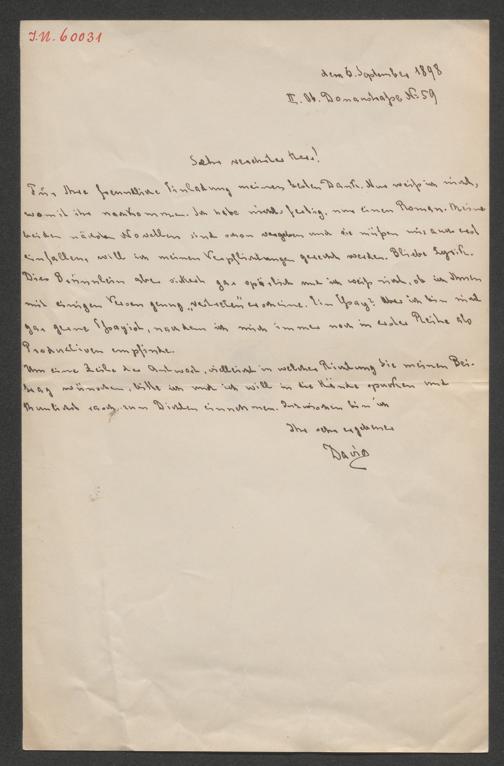 I.N. 60031
dem 6. September 1898
II. Ob. Donaustraße No. 59
Sehr verehrter Herr!
Für Ihre freundliche Einladung meinen besten Dank. Nur weiß ich nicht,
womit ihr nachkommen. Ich habe nichts fertig, nur einen Roman. Meine
beiden nächsten Novellen sind schon vergeben und die müßen mir auch erst
einfallen, will ich meinen Verpflichtungen gerecht werden. Bliebe Lyrik.
Dies Brünnlein aber sickert gar spärlich und ich weiß nicht, ob ich Ihnen
mit einigen Versen genug „vertreten“ erscheine. Ein Essay? Aber ich bin nicht
gar gerne Essayist, nachdem ich mich immer noch in erster Reihe als
Productiven empfinde.
Um eine Zeile der Antwort, vielleicht in welcher Richtung Sie meinen Bei-
trag wünschen, bitte ich und ich will in die Hände spucken und
thunlichst rasch zum Dichten einnehmen. Inzwischen bin ich
Ihr sehr ergebener
David